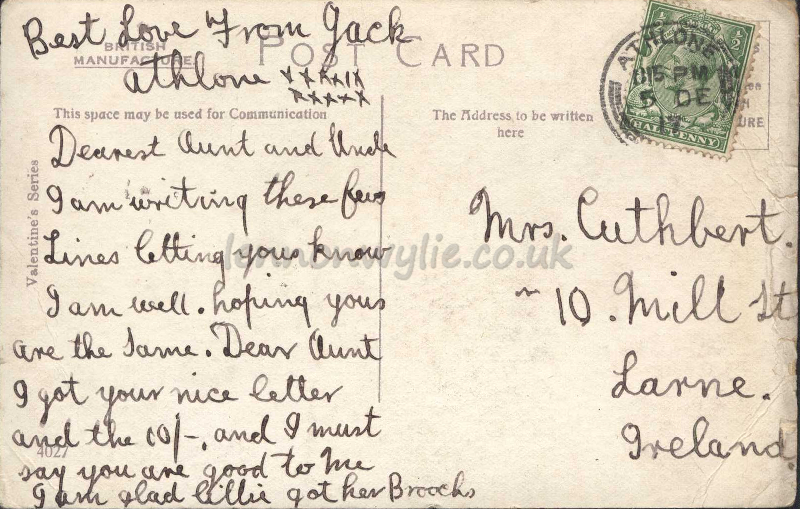 Best Love From Jack
Athlone xxxxxx
xxxxx
BRITISH
MANUFACTURE.
POST CARD
This space may be used for Communication
The Address to be written
here
Valentine's Series
Dearest Aunt and Uncle
I am writing these few
Lines letting yous know
I am well. hoping yous
are the same. Dear Aunt
I got your nice letter
and the 10/-, and I must
say you are good to me
I am glad Lillie got her Broochs
4027
ATHLONE
8 15 PM
5 DE
17
HALFPENNY
Mrs. Cuthbert.
10. Mill St
Larne.
Ireland.
lennonwylie.co.uk